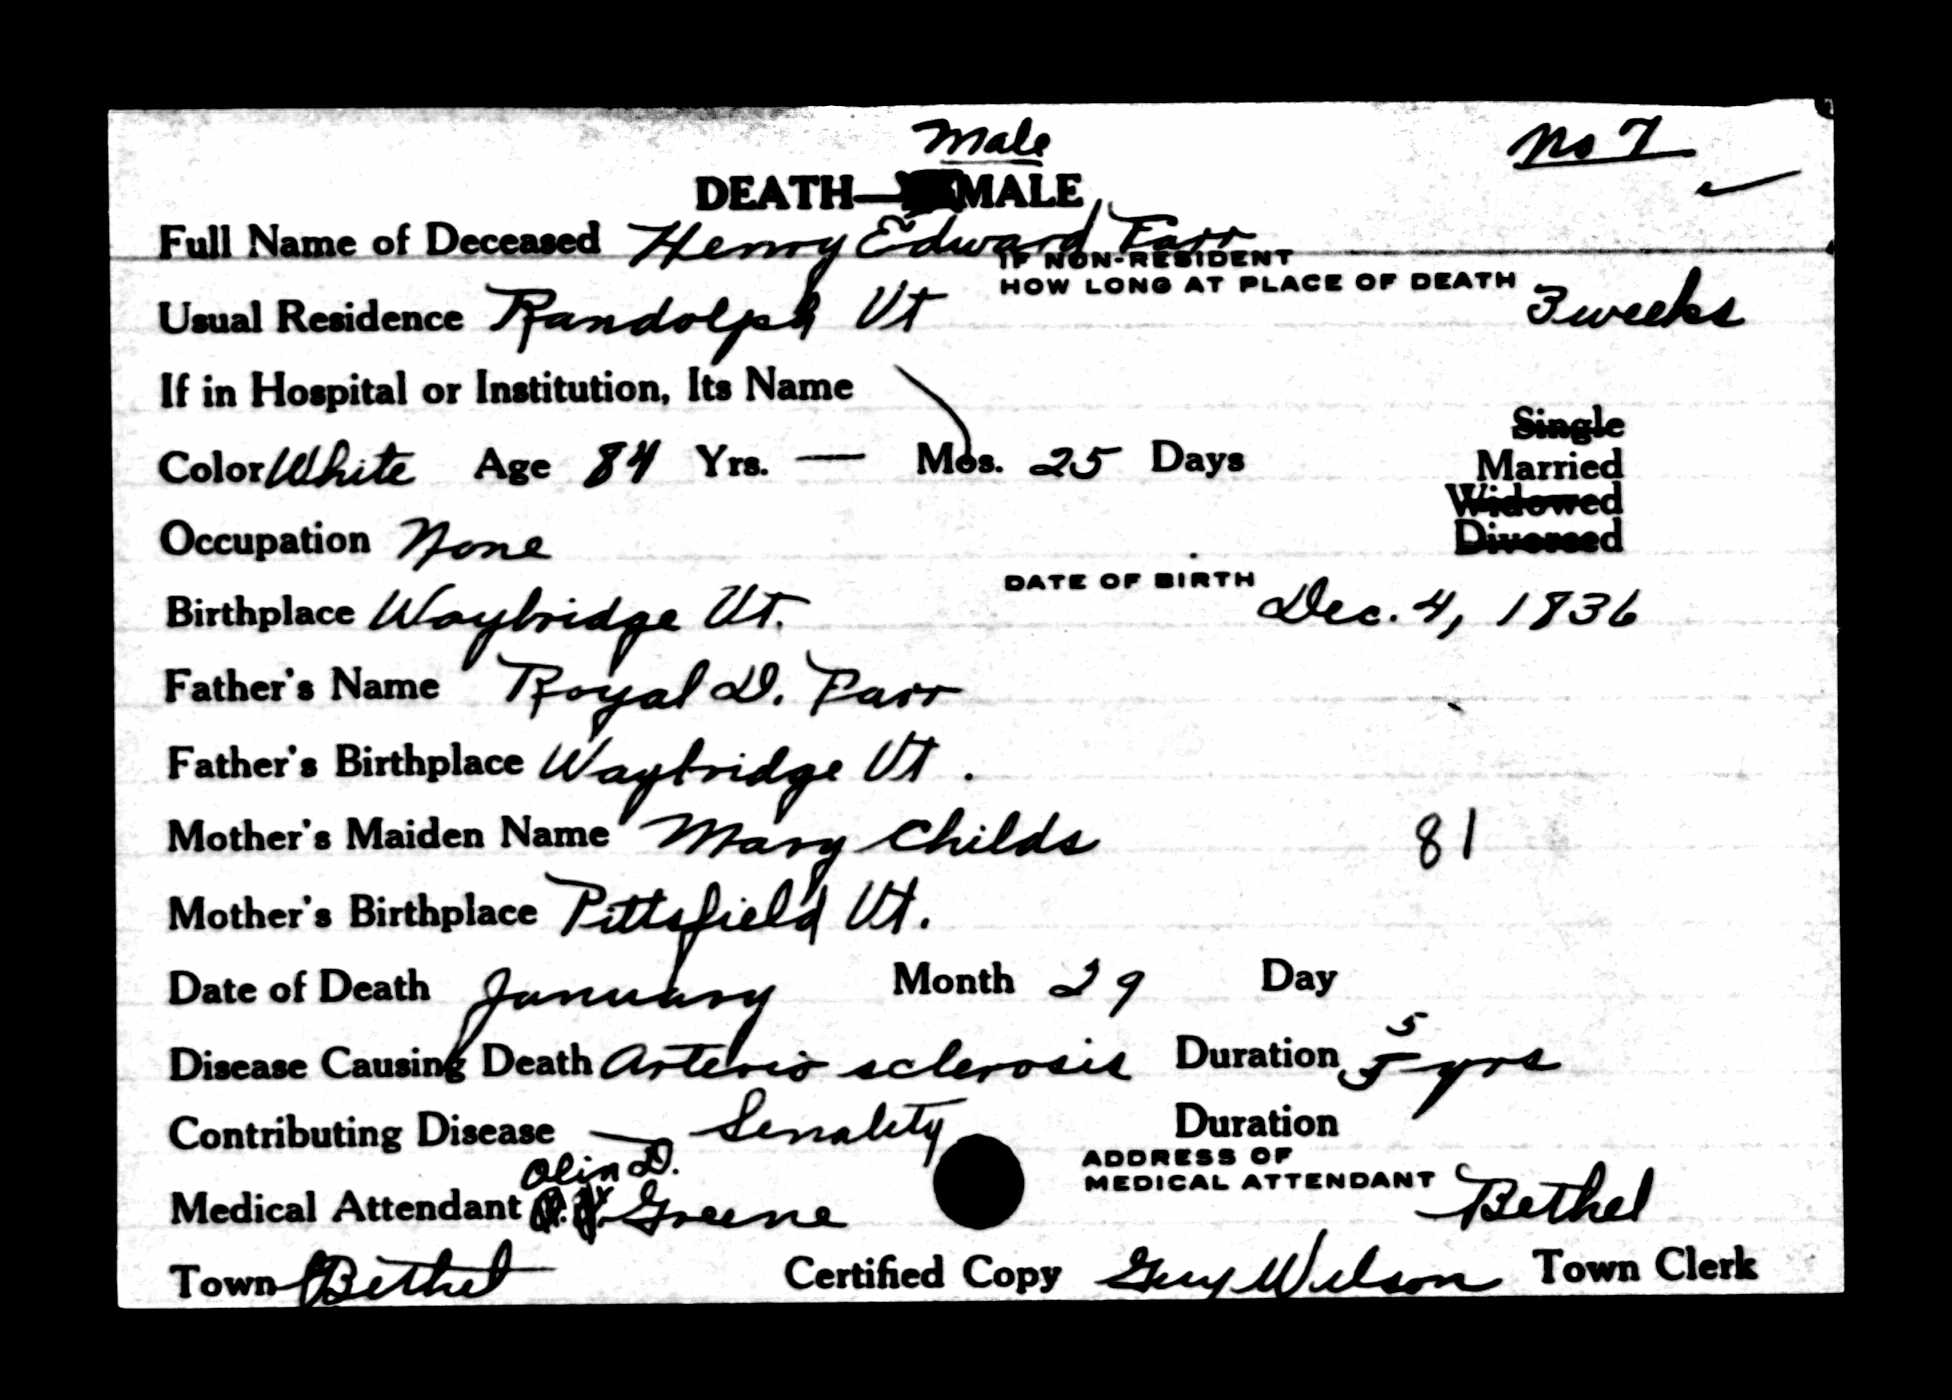 Male
No 7
DEATH—MALE
Full Name of Deceased Henry Edward Farr
IF NON-RESIDENT
HOW LONG AT PLACE OF DEATH 3 weeks
Usual Residence Randolph Vt
If in Hospital or Institution, Its Name
Single
Color White Age 84 Yrs. — Mos. 25 Days
Married
Widowed
Divorced
Occupation None
Birthplace Waybridge Vt. DATE OF BIRTH Dec. 4, 1836
Father's Name Royal D. Farr
Father's Birthplace Waybridge Vt.
Mother's Maiden Name Mary Childs 81
Mother's Birthplace Pittsfield Vt.
Date of Death January Month 29 Day
5
Disease Causing Death Arterio sclerosis Duration 5 yrs
Contributing Disease — Senality Duration
Olin D.
ADDRESS OF
MEDICAL ATTENDANT Bethel
Medical Attendant Greene
Town Bethel Certified Copy Guy Wilson Town Clerk